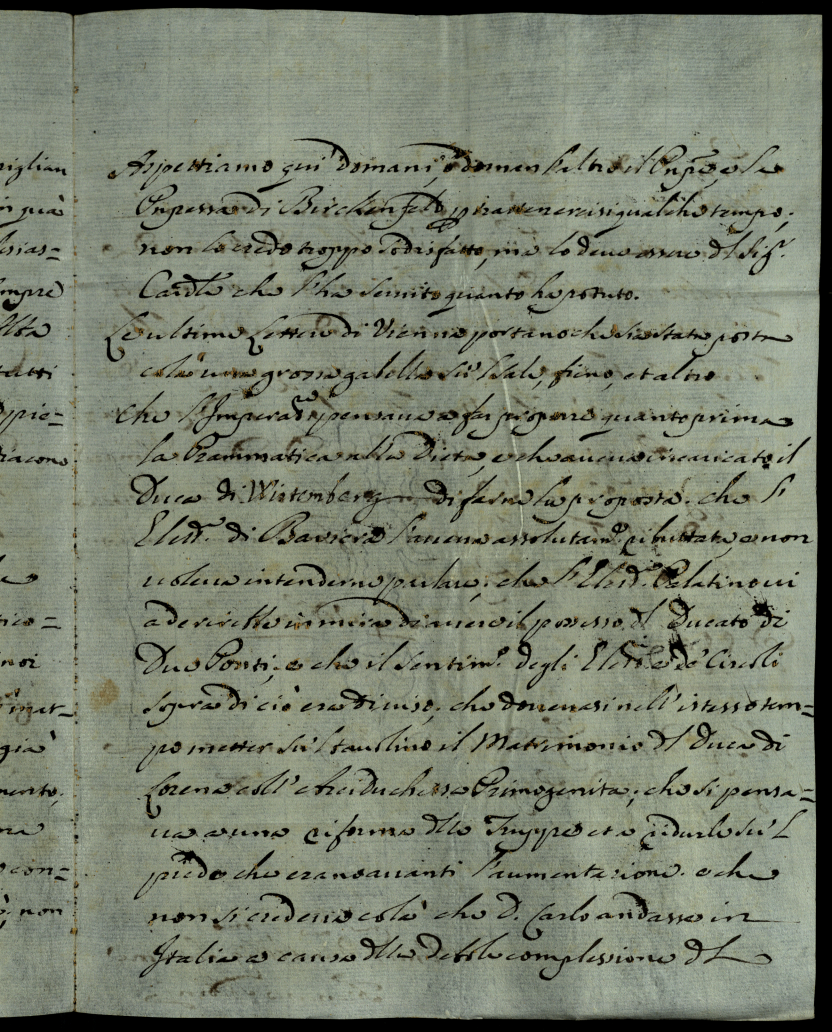 Aspettiamo quì domani, ò doman l'altro il Pnpe, e la
Pnpessa di Birckenfeld p trattenercisi qualche tempo;
non lo credo troppo sodisfatto, ma lo deve essere dl Sigr.
Cardle che l'ha servito quanto ha potuto.
Le ultime Lettere di Vienna portano che sia stata posta
colà una grossa gabella sù'l sale, fieno, et altro
che l'Imperadre pensava a far proporre quanto prima
la Prammatica alla Dieta, e che aveva incaricato il
Duca di Wirtemberg di farne la proposta. che l'
Elett.re di Baviera l'aveva assolutam.te ributtata, e non
voleva intenderne parlare; che l'Elett.re Palatino vi
aderirebbe in mira di avere il possesso dl Ducato di
Due Ponti; e che il sentim.to degli Elett.ri e de' Circoli
sopra di ciò era diviso; che dovevasi nell'istesso tem=
po metter sù'l tavolino il Matrimonio dl Duca di
Lorena coll'Arciduchessa Primogenita; che si pensa=
va a una riforma dlle Truppe et a ridurle sù'l
piede che erano avanti l'aumentazione. e che
non si credeva colà che D. Carlo andasse in
Italia a causa dlla debole complessione dl
piglian
in quà
=
empre
tutti
=
non
già
mento;
con=